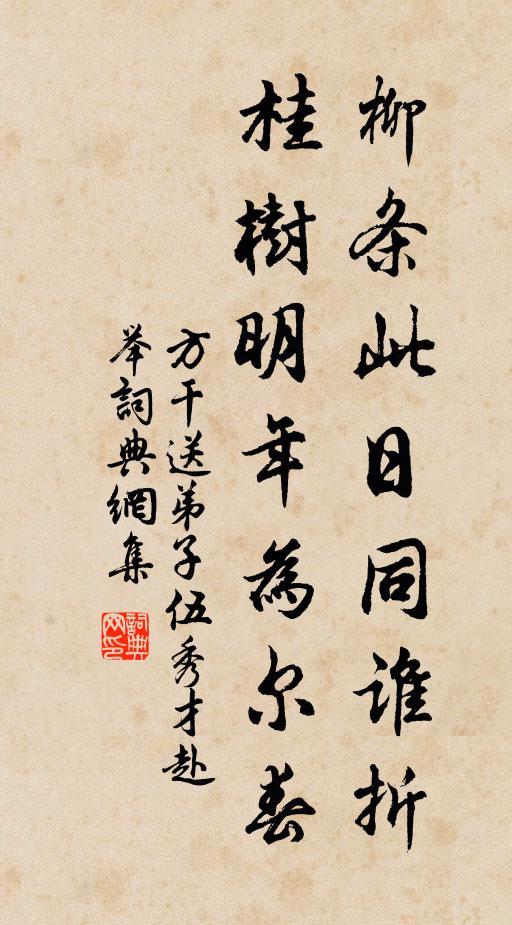 柳条此日同谁折
桂樹明年為尔春
方干送弟子伍秀才赴
举詞典網集
詞典网印